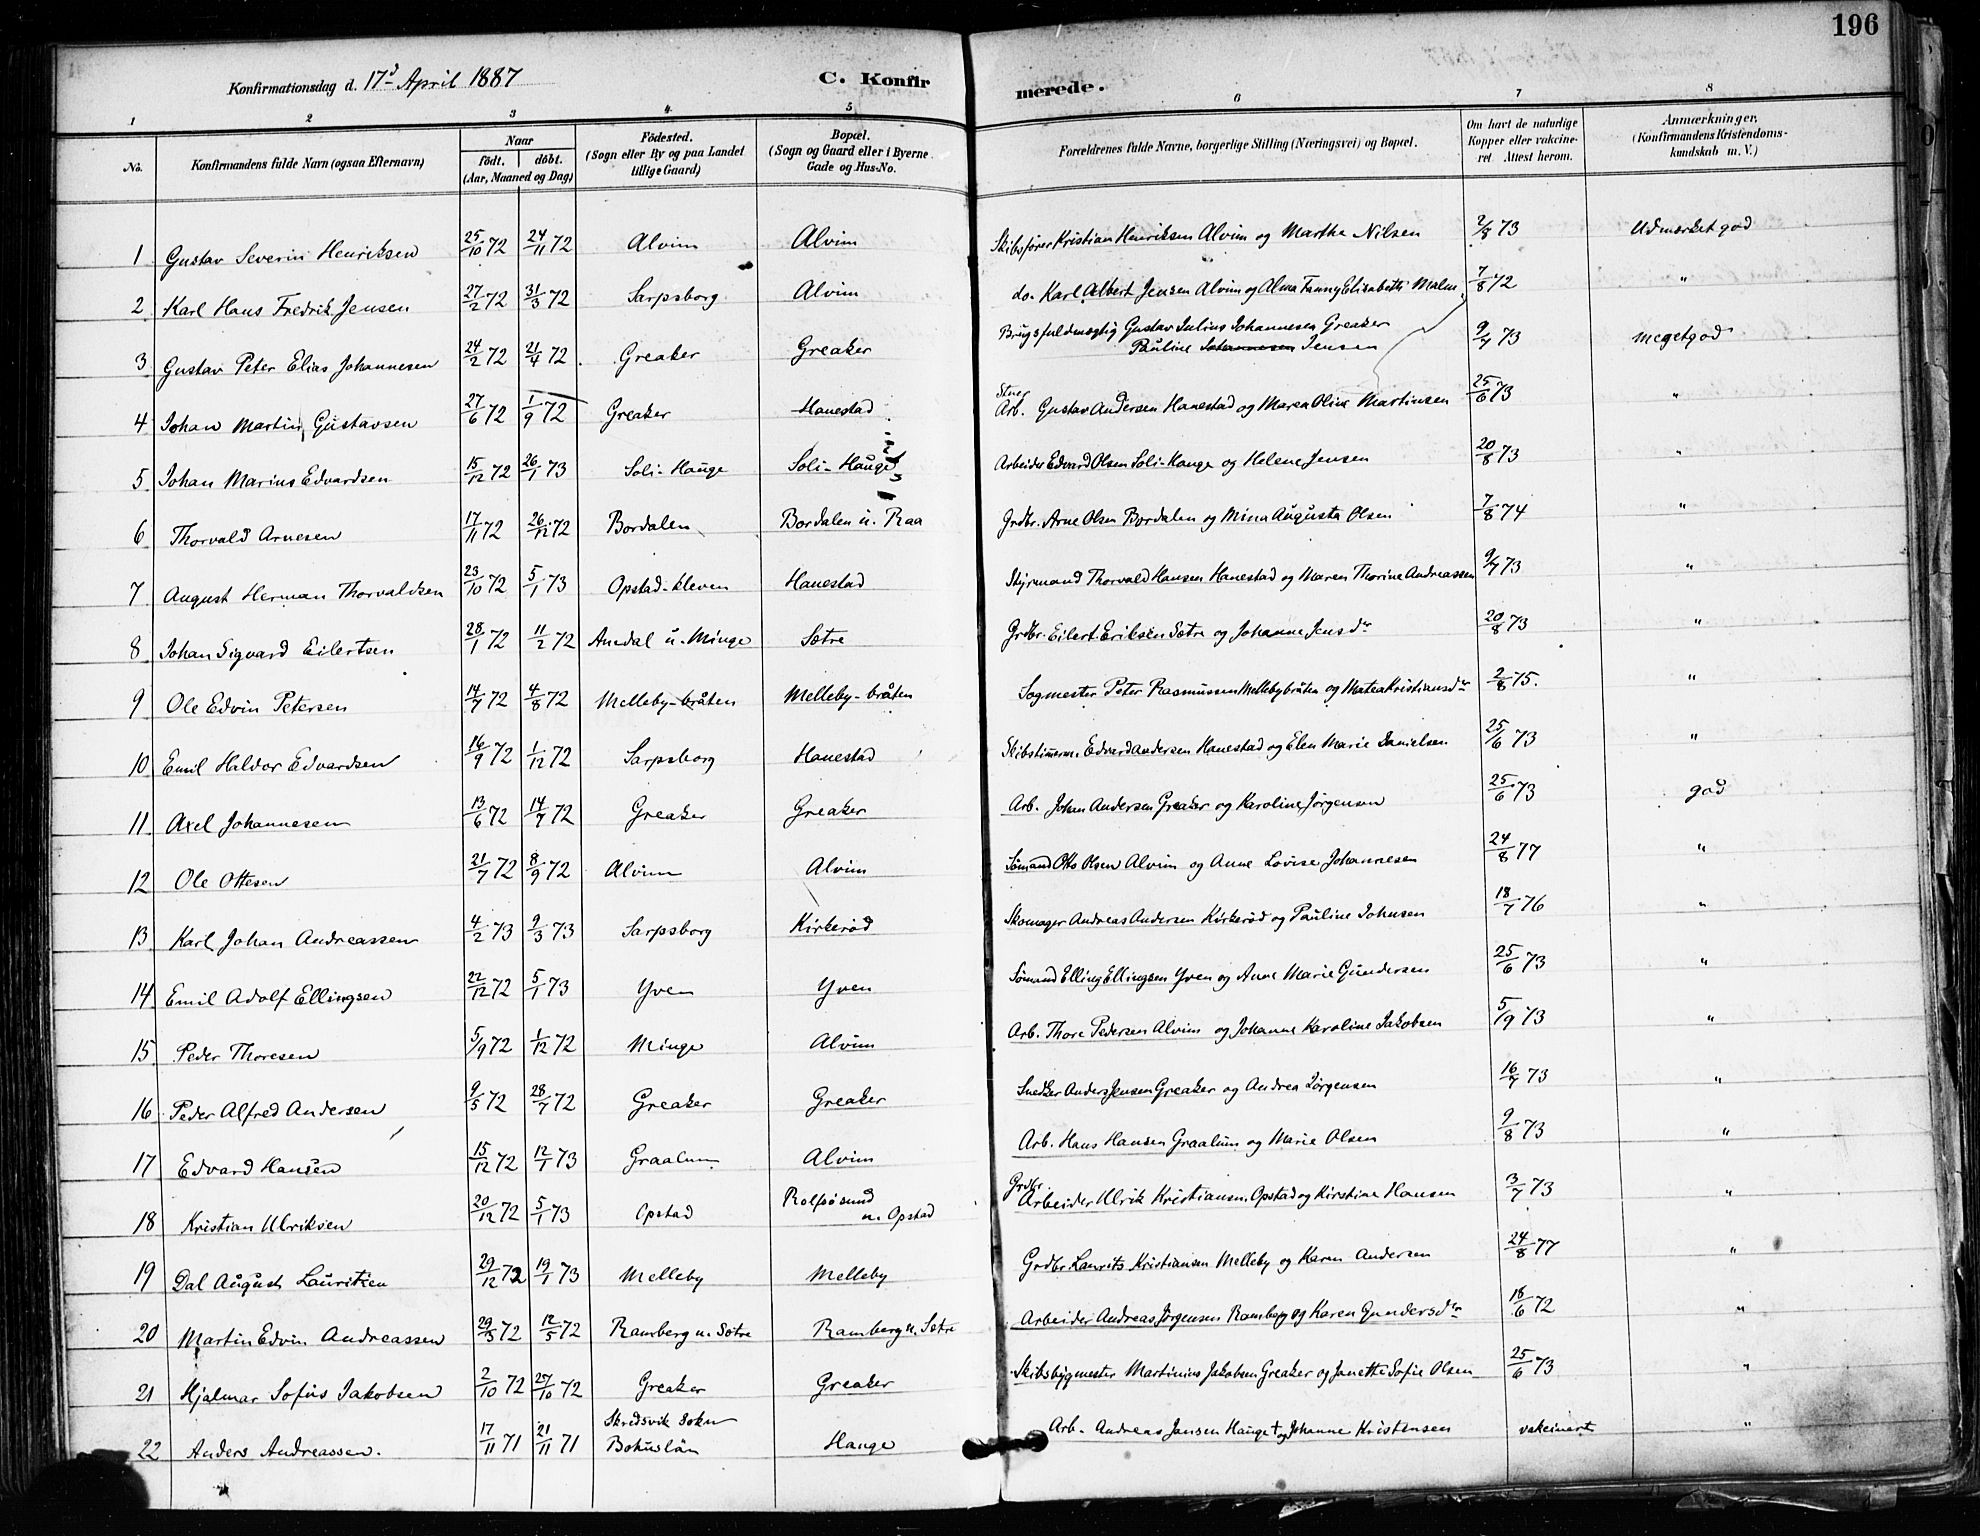 196
Konfirmationsdag d. 17d April 1887 C. Konfirmerede.
1 2 3 4 5 6 7 8
No. Konfirmandens fulde Navn (ogsaa Efternavn) Naar født. døbt. (Aar, Maaned og Dag) Fødested. (Sogn eller By og paa Landet tillige Gaard) Bopæl. (Sogn og Gaard eller i Byerne Gade og Hus-No. Forældrenes fulde Navne, borgerlige Stilling (Næringsvei) og Bopæl. Om havt de naturlige Kopper eller vakcineret. Attest herom. Anmærkninger. (Konfirmandens Kristendomskundskab m. V.)
1 Gustav Severin Henriksen 25/10 72 24/11 72 Alvim Alvim Skibsfører Kristian Henriksen Alvim og Marthe Nilsen 2/8 73 Udmærket god
2 Karl Hans Fredrik Jensen 27/2 72 31/3 72 Sarpsborg Alvim do. Karl Albert Jensen Alvim og Alma Fanny Elisabeth Malm 7/8 72 "
3 Gustav Peter Elias Johannesen 24/2 72 21/4 72 Greaker Greaker Brugsfuldmægtig Gustav Julius Johannesen Greaker Pauline Johannesen Jensen 9/7 73 meget god
4 Johan Martin Gustavsen 27/6 72 1/9 72 Greaker Hanestad Stuer Arb. Gustav Andersen Hanestad og Maren Oline Martinsen 25/6 73 "
5 Johan Marius Edvardsen 15/12 72 26/1 73 Soli-Hauge Soli-Hauge Arbeider Edvard Olsen Soli-Hauge og Helene Jensen 20/8 73 "
6 Thorvald Arnesen 17/11 72 26/12 72 Bordalen Bordalen u. Raa Grdbr. Arne Olsen Bordalen og Mina Augusta Olsen 7/8 74 "
7 August Herman Thorvaldsen 23/10 72 5/1 73 Opstad-kleven Hanestad Styrmand Thorvald Hansen Hanestad og Maren Thorine Andreassen 9/7 73 "
8 Johan Sigvard Eilertsen 28/1 72 11/2 72 Anedal u. Minge Sætre Grdbr. Eilert Eriksen Sætre og Johanne Jensdr 20/8 73 "
9 Ole Edvin Petersen 14/7 72 4/8 72 Melleby-bråten Melleby-bråten Sogmester Peter Rasmussen Mellebybråten og Matea Kristiansdr 2/8 75. "
10 Emil Haldor Edvardsen 16/9 72 1/12 72 Sarpsborg Hanestad Skibstimerm. Edvard Andersen Hanestad og Elen Marie Danielsen 25/6 73 "
11 Axel Johannesen 13/6 72 14/7 72 Greaker Greaker Arb. Johan Andersen Greaker og Karoline Jørgensen 25/6 73 god
12 Ole Ottesen 21/7 72 8/9 72 Alvim Alvim Sømand Otto Olsen Alvim og Anne Lovise Johannesen 24/8 77 "
13 Karl Johan Andreassen 4/2 73 9/3 73 Sarpsborg Kirkerød Skomager Andreas Andersen Kirkerød og Pauline Johnsen 18/7 76 "
14 Emil Adolf Ellingsen 22/12 72 5/1 73 Yven Yven Sømand Elling Ellingsen Yven og Anne Marie Gundersen 25/6 73 "
15 Peder Thoresen 5/9 72 1/12 72 Minge Alvim Arb. Thore Pedersen Alvim og Johanne Karoline Jakobsen 5/9 73 "
16 Peder Alfred Andersen 9/5 72 28/7 72 Greaker Greaker Snedker Anders Jensen Greaker og Andrea Jørgensen 16/7 73 "
17 Edvard Hansen 15/12 72 12/1 73 Graalum Alvim Arb. Hans Hansen Graalum og Marie Olsen 9/8 73 "
18 Kristian Ulriksen 20/12 72 5/1 73 Opstad Rolfsøsund u. Opstad Grdbr. Arbeider Ulrik Kristiansen Opstad og Kirstine Hansen 3/7 73 "
19 Dal August Lauritzen 29/12 72 19/1 73 Melleby Melleby Grdbr Laurits Kristiansen Melleby og Karen Andersen 24/8 77 "
20 Martin Edvin Andreassen 29/3 72 12/5 72 Ramberg u. Sætre Ramberg u. Sætre Arbeider Andreas Jørgensen Ramberg og Karen Gundersdr 18/6 72 "
21 Hjalmar Sofus Jakobsen 2/10 72 27/10 72 Greaker Greaker Skibsbygmester Martinius Jakobsen Greaker og Janette Sofie Olsen 25/6 73 "
22 Anders Andreassen. 17/11 71 21/11 71 Skredsvik Sokn Bohuslän Hauge Arb. Andreas Jansen Hauge + og Johanne Kristensen vakcinert "